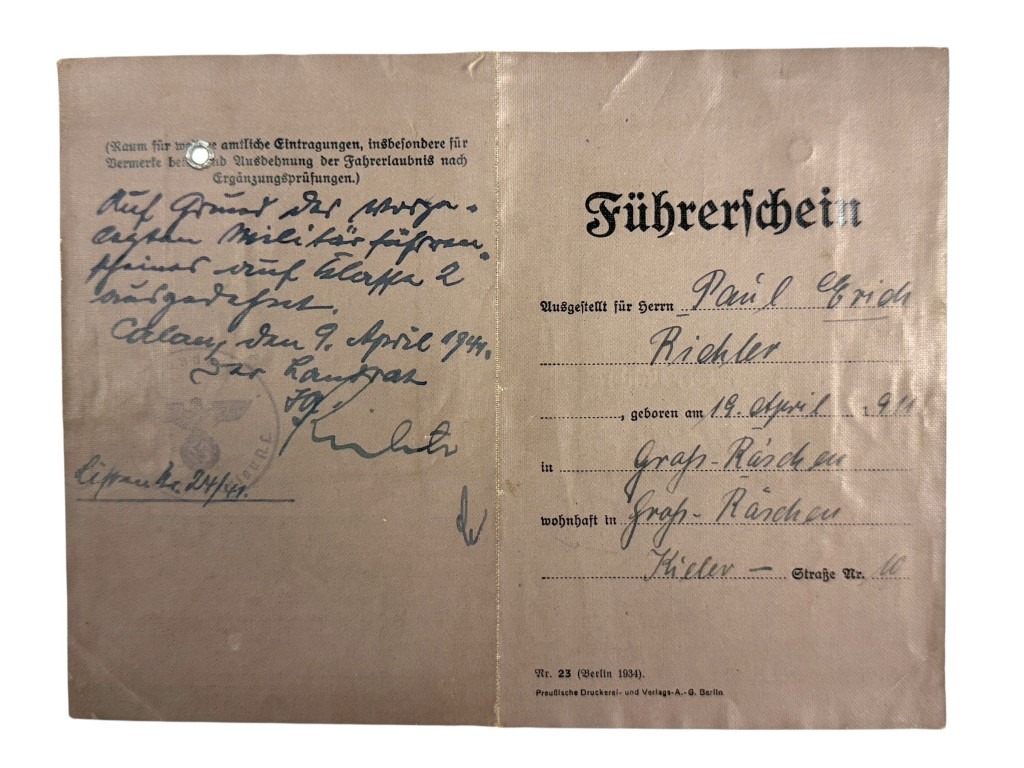 (Raum für weitere amtliche Eintragungen, insbesondere für
Vermerke betreffend Ausdehnung der Fahrerlaubnis nach
Ergänzungsprüfungen.)
Auf Grund des vorge-
legten Militärführer-
scheines auf Klasse 2
ausgedehnt.
Calau, den 9. April 1941.
Der Landrat
Listen Nr. 24/41.
Führerschein
Ausgestellt für Herrn Paul Erich
Richter
, geboren am 19. April 1911
in Groß-Räschen
wohnhaft in Groß-Räschen
Kieler – Straße Nr. 10
Nr. 23 (Berlin 1934).
Preußische Druckerei- und Verlags-A.-G. Berlin